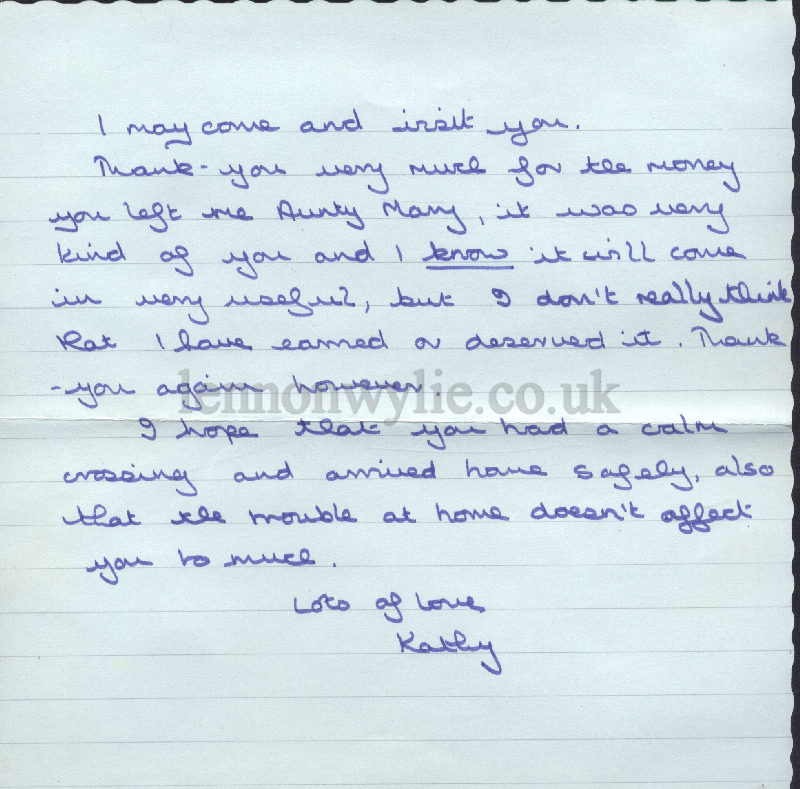 I may come and visit you.
Thank-you very much for the money
you left me Aunty Mary, it was very
kind of you and I know it will come
in very useful, but I don't really think
that I have earned or deserved it. Thank
-you again however.
lennonwylie.co.uk
I hope that you had a calm
crossing and arrived home safely, also
that the trouble at home doesn't affect
you to much.
Lots of love
Kathy